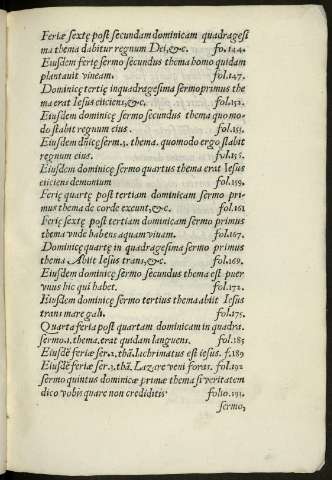 Feriæ sextę post secundam dominicam quadragesi
ma thema dabitur regnum Dei, &c. fo.144.
Eiusdem ferię sermo secundus thema homo quidam
plantauit vineam. fol.147.
Dominicę tertię in quadragesima sermo primus the
ma erat Iesus eiiciens, &c. fol.152.
Eiusdem dominicę sermo secundus thema quomo-
do stabit regnum eius. fol.153.
Eiusdem dñicę serm.3. thema. quomodo ergo stabit
regnum eius. fol.156.
Eiusdem dominicę sermo quartus thema erat Iesus
eiiciens demonium fol.159.
Ferię quartę post tertiam dominicam sermo pri-
mus thema de corde exeunt, &c. fol.161
Ferię sextę post tertiam dominicam sermo primus
thema vnde habens aquam viuam. fol.167.
Dominicę quartę in quadragesima sermo primus
thema Abiit Iesus trans, &c. fol.169.
Eiusdem dominicę sermo secundus thema est puer
vnus hic qui habet. fol.172.
Eiusdem dominicę sermo tertius thema abiit Iesus
trans mare gali. fol.175.
Quarta feria post quartam dominicam in quadra.
sermo.1. thema. erat quidam languens. fol.185
Eiusdē feriæ ser.2. thã. lachrimatus est iesus. f.189
Eiusdē feriæ ser.3. thã. Lazare veni foras. fol.192
sermo quintus dominicæ primæ thema si veritatem
dico vobis quare non crediditis folio.193.
sermo,